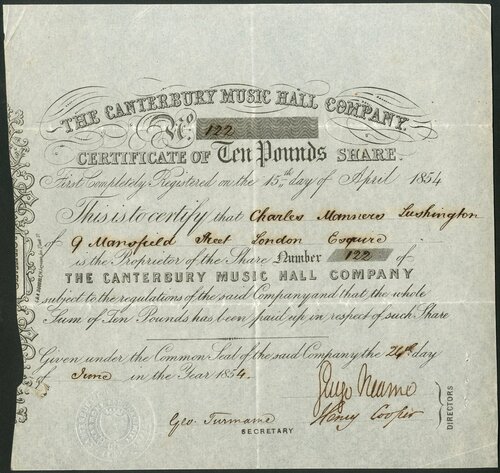 THE CANTERBURY MUSIC HALL COMPANY.
No. 122
CERTIFICATE OF Ten Pounds SHARE.
First completely Registered on the 15th day of April 1854
This is to certify that Charles Manners Lushington
of 9 Mansfield Street London Esquire
is the Proprietor of the Share Number 122 of
THE CANTERBURY MUSIC HALL COMPANY
subject to the regulations of the said Company and that the whole
Sum of Ten Pounds has been paid up in respect of such Share
Given under the Common Seal of the said Company the 24th day
of June in the Year 1854.
Neame
Henry Cooper
DIRECTORS
Geo. Furmane
SECRETARY